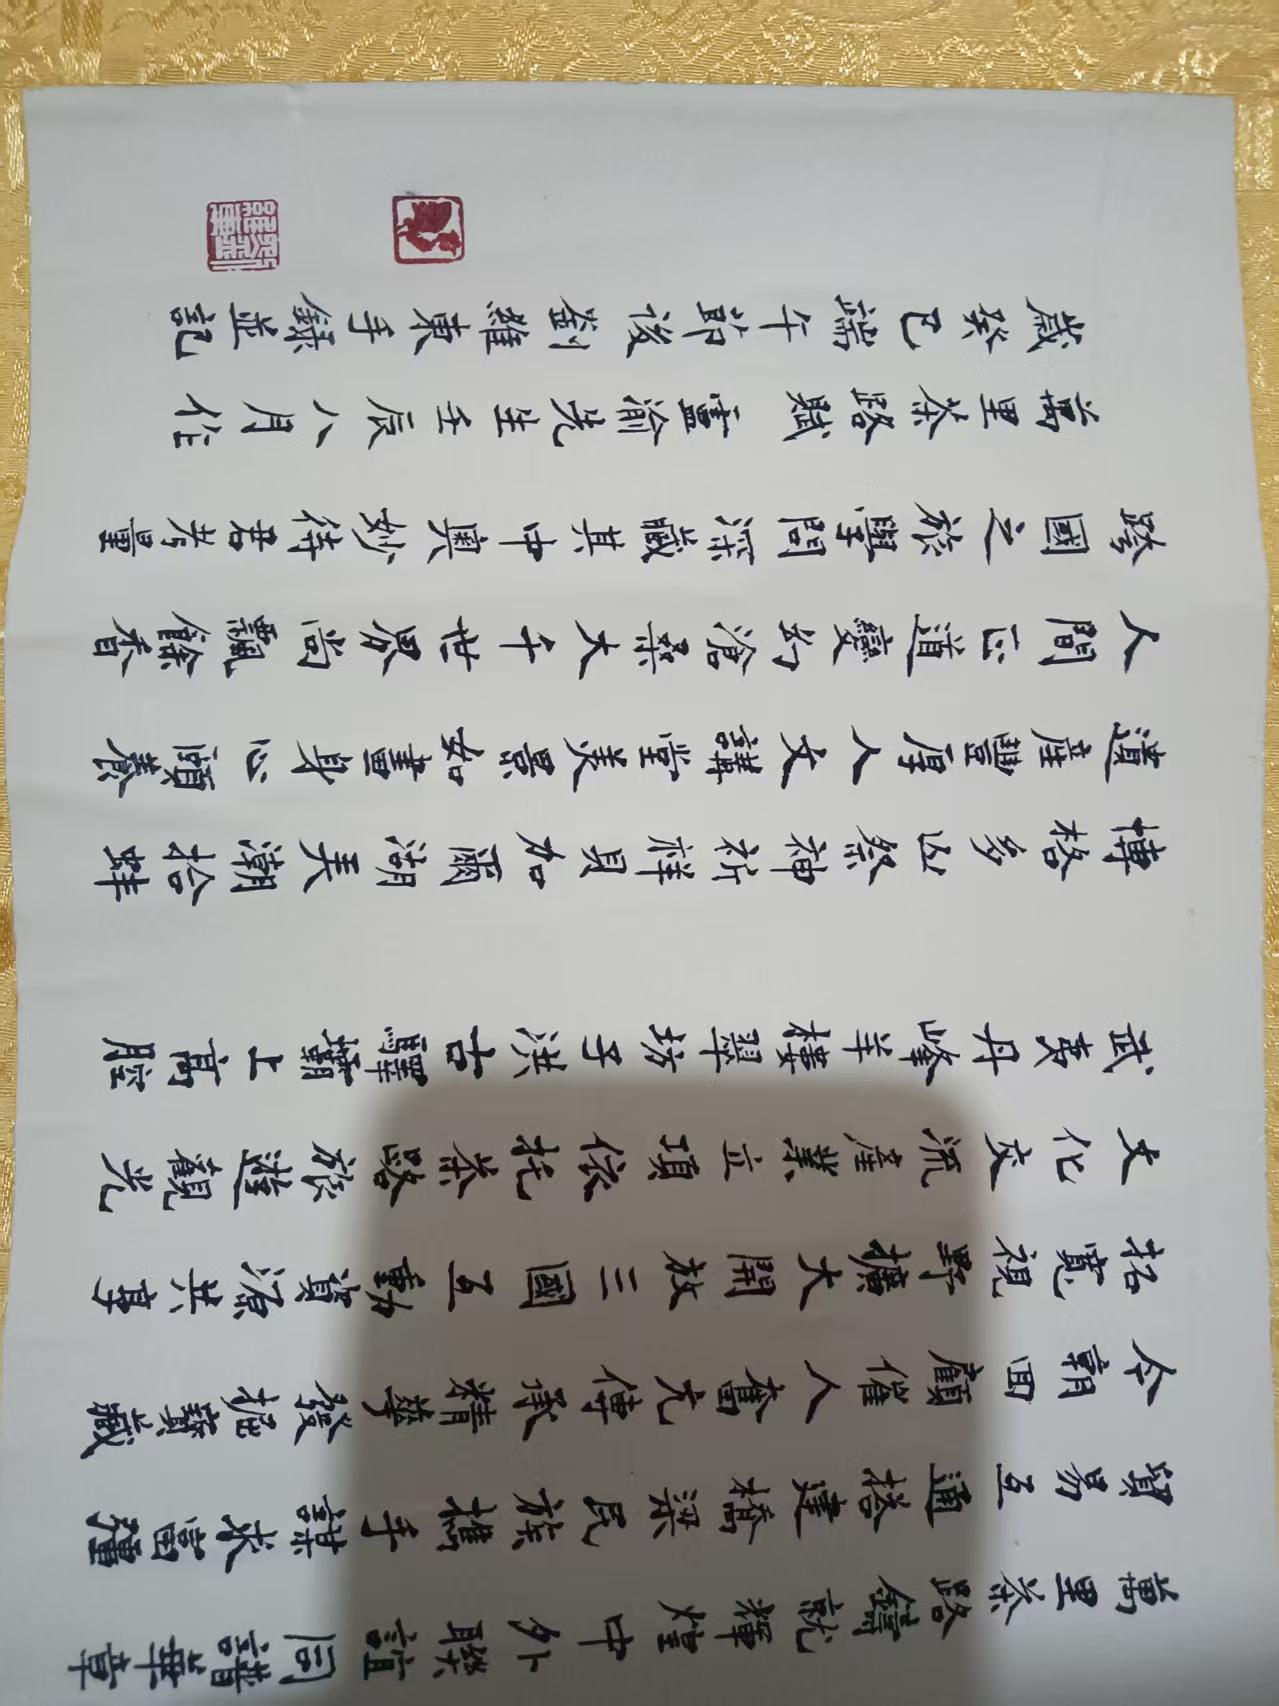 萬里茶路鑄就輝煌中外聯誼同譜華章
貿易互通搭建橋梁民族攜手謀求富彊
今朝回顧催人奮亢傳承精華發掘寶藏
拓寬視野擴大開放三國互動資源共享
文化交流產業立項依托茶路旅遊觀光
武夷丹峰羊樓翠坊子洪古驛壩上高腔
博格多山祭神祈祥貝加爾湖弄潮拾蚌
遺產豐厚人文講堂美景如畫身心頤養
人間正道變幻滄桑大千世界尚飄餘香
跨國之旅學問深藏其中奧妙待君考量
萬里茶路賦 靈渝先生壬辰八月作
歲癸巳端午節後劉維東手錄並記